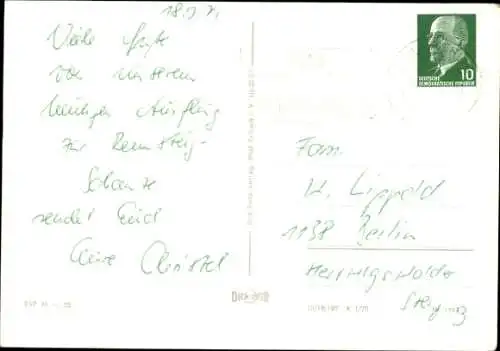 Viele Grüße
von unserem
heutigen Ausflug
zur Rennsteig-
Schanze
sendet Euch
Eure Christel
10
DEUTSCHE
DEMOKRATISCHE REPUBLIK
Fam.
K. Lippold
1138 Berlin
Herwigswalder
Steig